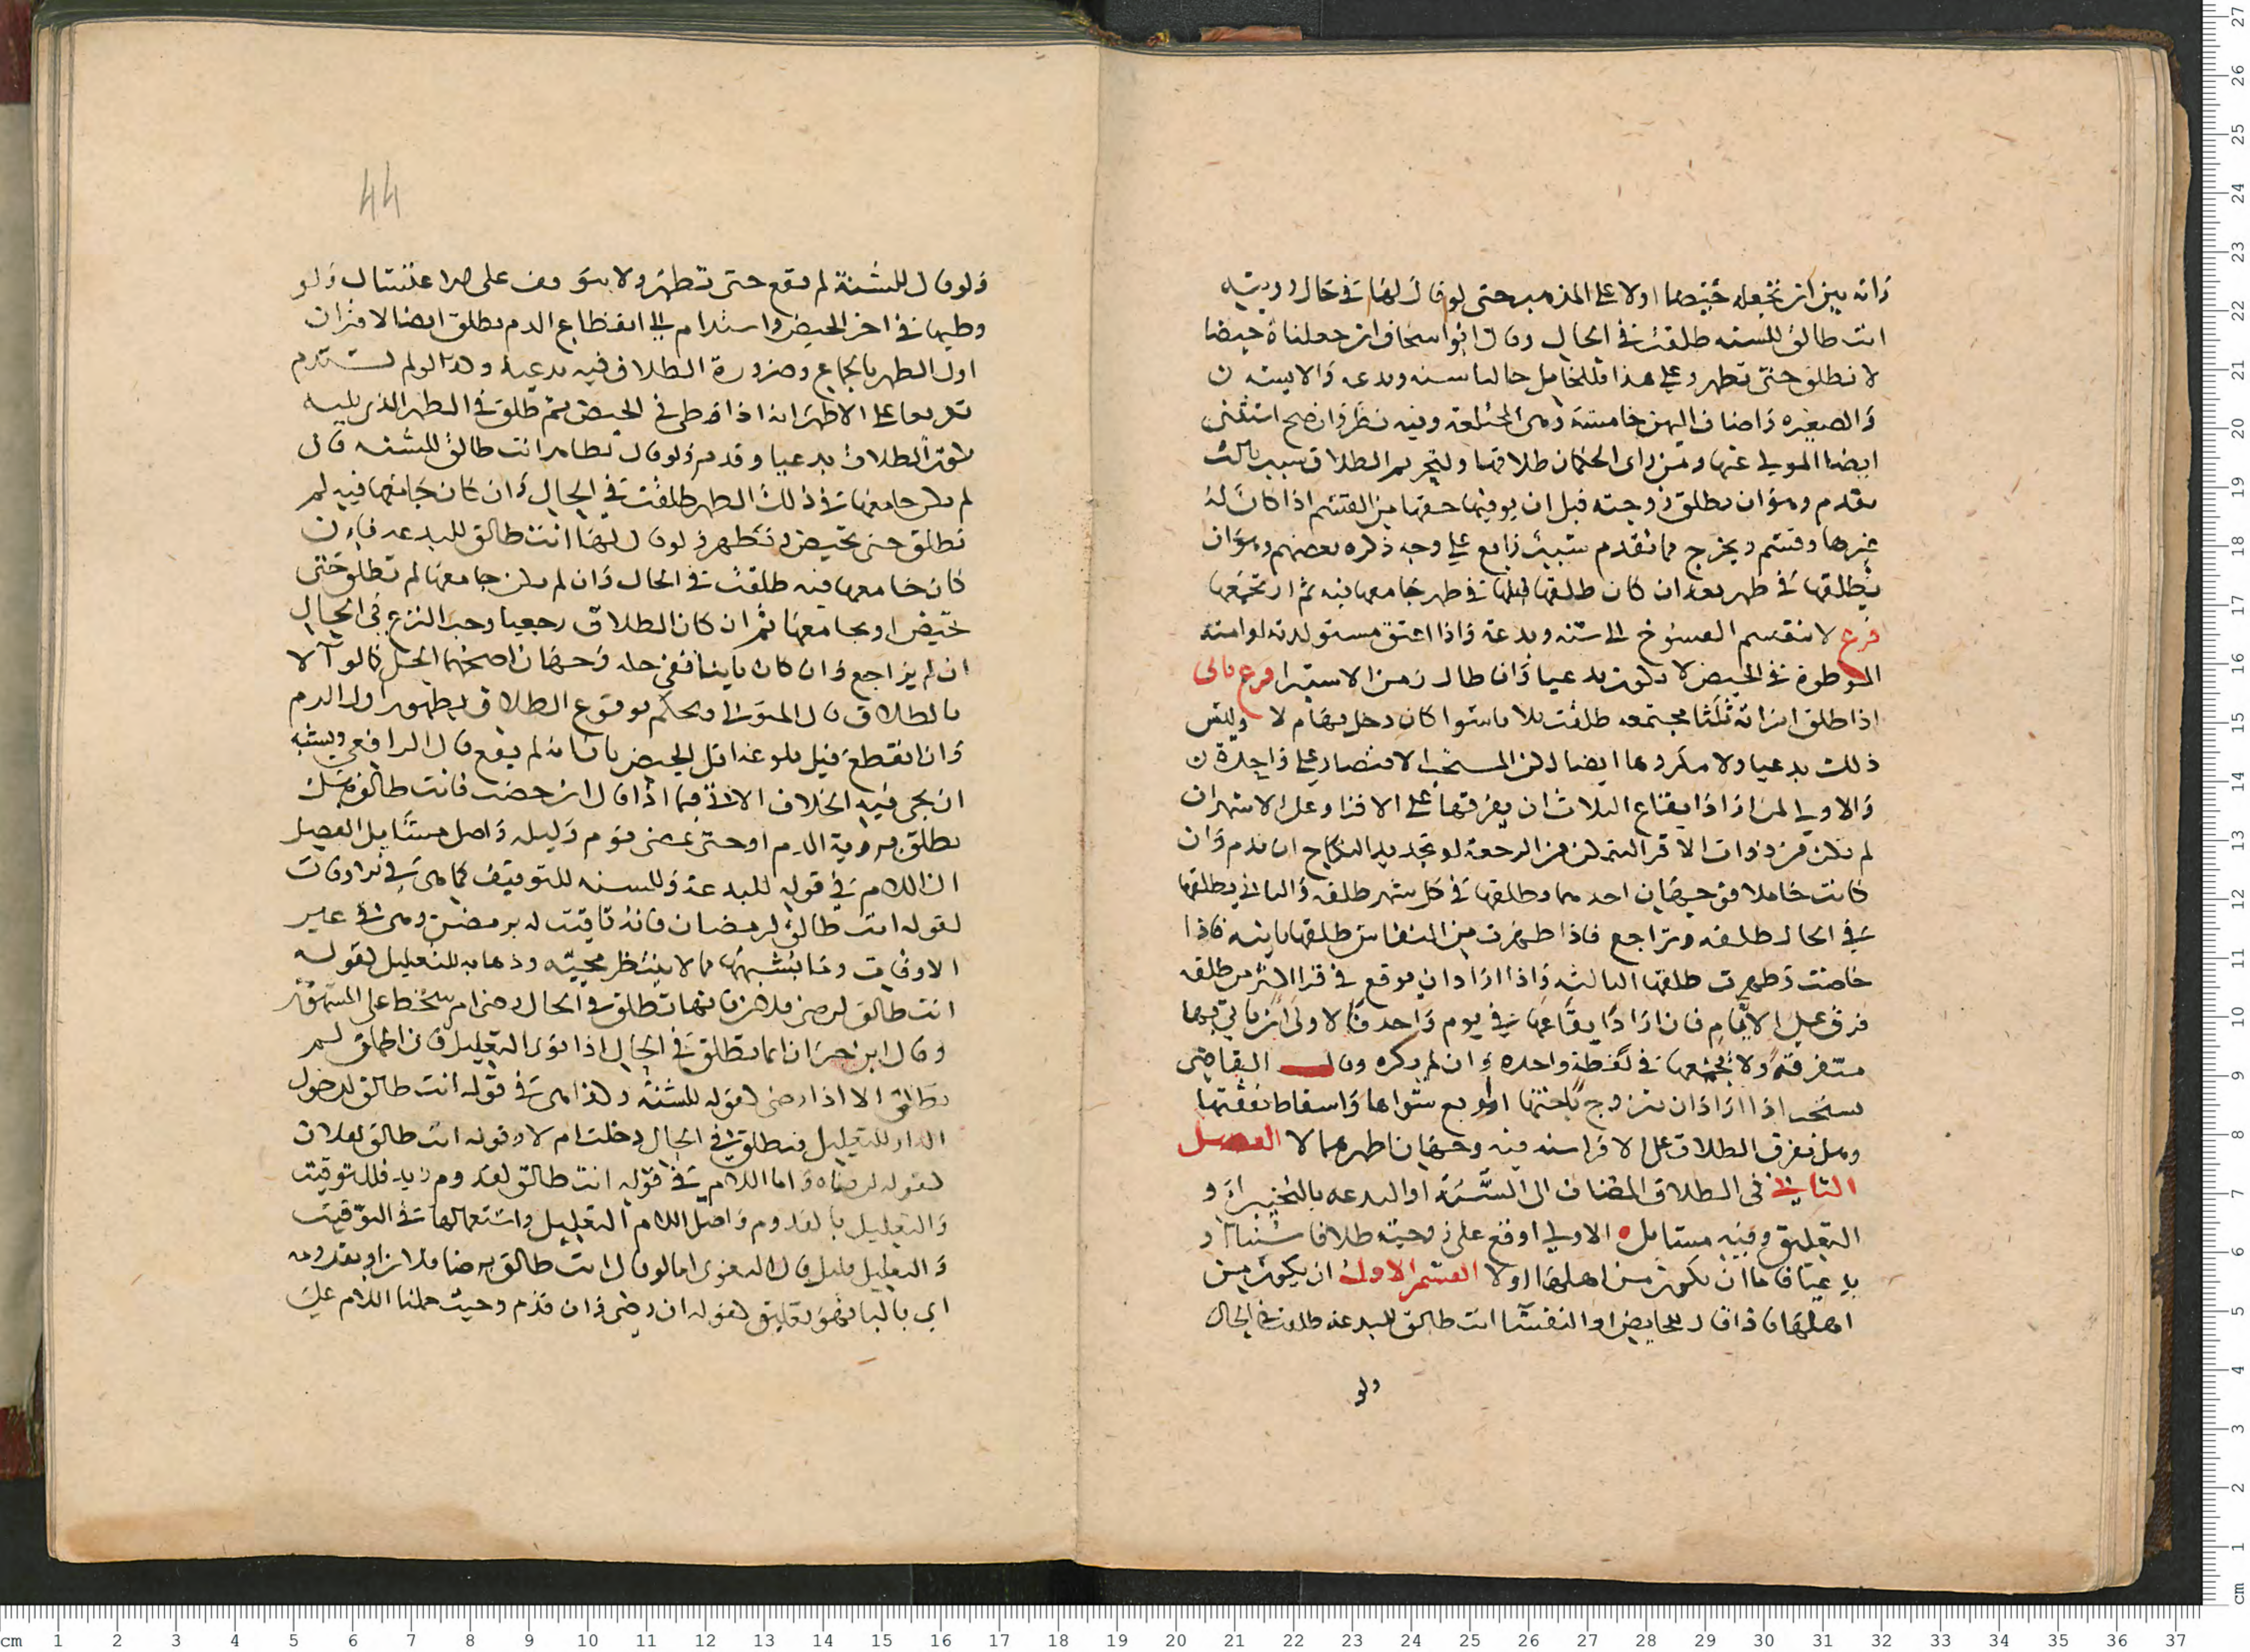 وانه بين ان نجعله حيضا اولا على المذهب حتى لو قال لها في حال رويته
انت طالق للسنه طلقت في الحال وقال ابو اسحاق ان جعلناه حيضا
لا تطلق حتى تطهر وعلى هذا فللحامل حالتا سنه وبدعه والايسه
والصغيره واضاف اليهن خامسة وهي المختلعة وفيه نظر وان صح استثنى
ايضا المولى عنها ومن راى الحكمان طلاقها ولتحريم الطلاق سبب ثالث
تقدم وهو ان يطلق زوجته قبل ان يوفيها حقها من القسم اذا كان له
غيرها وقسم ويخرج مما تقدم سبب رابع على وجه ذكره بعضهم وهو ان
يطلقها في طهر بعد ان كان طلقها قبلها في طهر جامعها فيه ثم ارتجعها
فرع لا ينقسم الفسوخ الى سنه وبدعة واذا اعتق مستولدته او امته
الموطوة في الحيض لا يكون بدعيا وان طال زمن الاستبرا فرع ثاني
اذا طلق امراته ثلثا مجتمعه طلقت ثلاثا سوا كان دخل بها ام لا وليس
ذلك بدعيا ولا مكروها ايضا لكن المستحب الاقتصار على واحدة
والاولى لمن اراد ايقاع الثلاث ان يفرقها على الاقرا وعلى الاشهر ان
لم تكن من ذوات الاقرا لتمكن من الرجعة او تجديد النكاح ان ندم وان
كانت حاملا فوجهان احدهما يطلقها في كل شهر طلقه والثاني يطلقها
في الحال طلقه ويراجع فاذا طهرت من النفاس طلقها ثانيه فاذا
حاضت وطهرت طلقها الثالثه واذا اراد ان يوقع في قرا اكثر من طلقه
فرق على الايام فان اراد ايقاعها في يوم واحد فالاولى ان ياتي بها
متفرقة ولا يجمعها في لفظة واحده وان لم يكره وقال القاضي
يستحب اذا اراد ان يتزوج باختها او اربع سواها واسقاط نفقتها
وهل تفرق الطلاق على الاقرا سنه فيه وجهان اظهرهما لا الفصل
الثاني في الطلاق المضاف الى السنة او البدعه بالتنجيز او
التعليق وفيه مسائل ه الاولى اوقع على زوجته طلاقا سنيا او
بدعيا فاما ان تكون من اهلها اولا القسم الاول ان يكون من
اهلها فاذا قال للحايض او النفسا انت طالق للبدعه طلقت في الحال
ولو
44
ولو قال للسنة لم يقع حتى تطهر ولا يتوقف على الاغتسال ولو
وطيها في اخر الحيض واستدام الى انقطاع الدم تطلق ايضا لاقتران
اول الطهر بالجماع وضرورة الطلاق فيه بدعيا وكذا لو لم يستدم
تفريعا على الاظهر انه اذا وطي في الحيض ثم طلق في الطهر الذي يليه
يقع الطلاق بدعيا وقد مر ولو قال لطاهر انت طالق للسنه فان
لم يكن جامعها في ذلك الطهر طلقت في الحال وان كان جامعها فيه لم
تطلق حتى تحيض وتطهر ولو قال لها انت طالق للبدعه فان
كان جامعها فيه طلقت في الحال وان لم يكن جامعها لم تطلق حتى
تحيض او يجامعها ثم ان كان الطلاق رجعيا وجب النزع في الحال
ان لم يراجع وان كان باينا ففي حله وجهان اصحهما الحل كالوآلا
بالطلاق قال المتولي ويحكم بوقوع الطلاق بظهور اول الدم
وان انقطع قبل بلوغه اقل الحيض بان انه لم يقع قال الرافعي ويشبه
ان يجي فيه الخلاف الاتي فيما اذا قال ان حضت فانت طالق هل
تطلق برويه الدم او حتى يمضي يوم وليله واصل مسايل الفصل
ان اللام في قوله للبدعة وللسنه للتوقيت كما هي في نداوقات
كقوله انت طالق لرمضان فانه تاقيت له برمضن وهي في غير
الاوقات وما يشبهها مما لا ينتظر مجيئه وذهابه للتعليل كقوله
انت طالق لرضى فلان فانها تطلق في الحال رضي ام سخط على المشهور
وقال ابن خيران انما تطلق في الحال اذا نوى التعليل فان اطلق لم
تطلق الا اذا رضي كقوله للسنة وكذا هي في قوله انت طالق لدخول
الدار للتعليل فتطلق في الحال دخلت ام لا وقوله انت طالق لفلان
كقوله لرضاه واما اللام في قوله انت طالق لقدوم زيد فللتوقيت
والتعليل بالقدوم واصل اللام التعليل واستعمالها في التوقيت
والتعليل قليل قال البغوي اما لو قال انت طالق برضا فلان او بقدومه
اي بالبا فهو تعليق كقوله ان رضي وان قدم وحيث حملنا اللام على